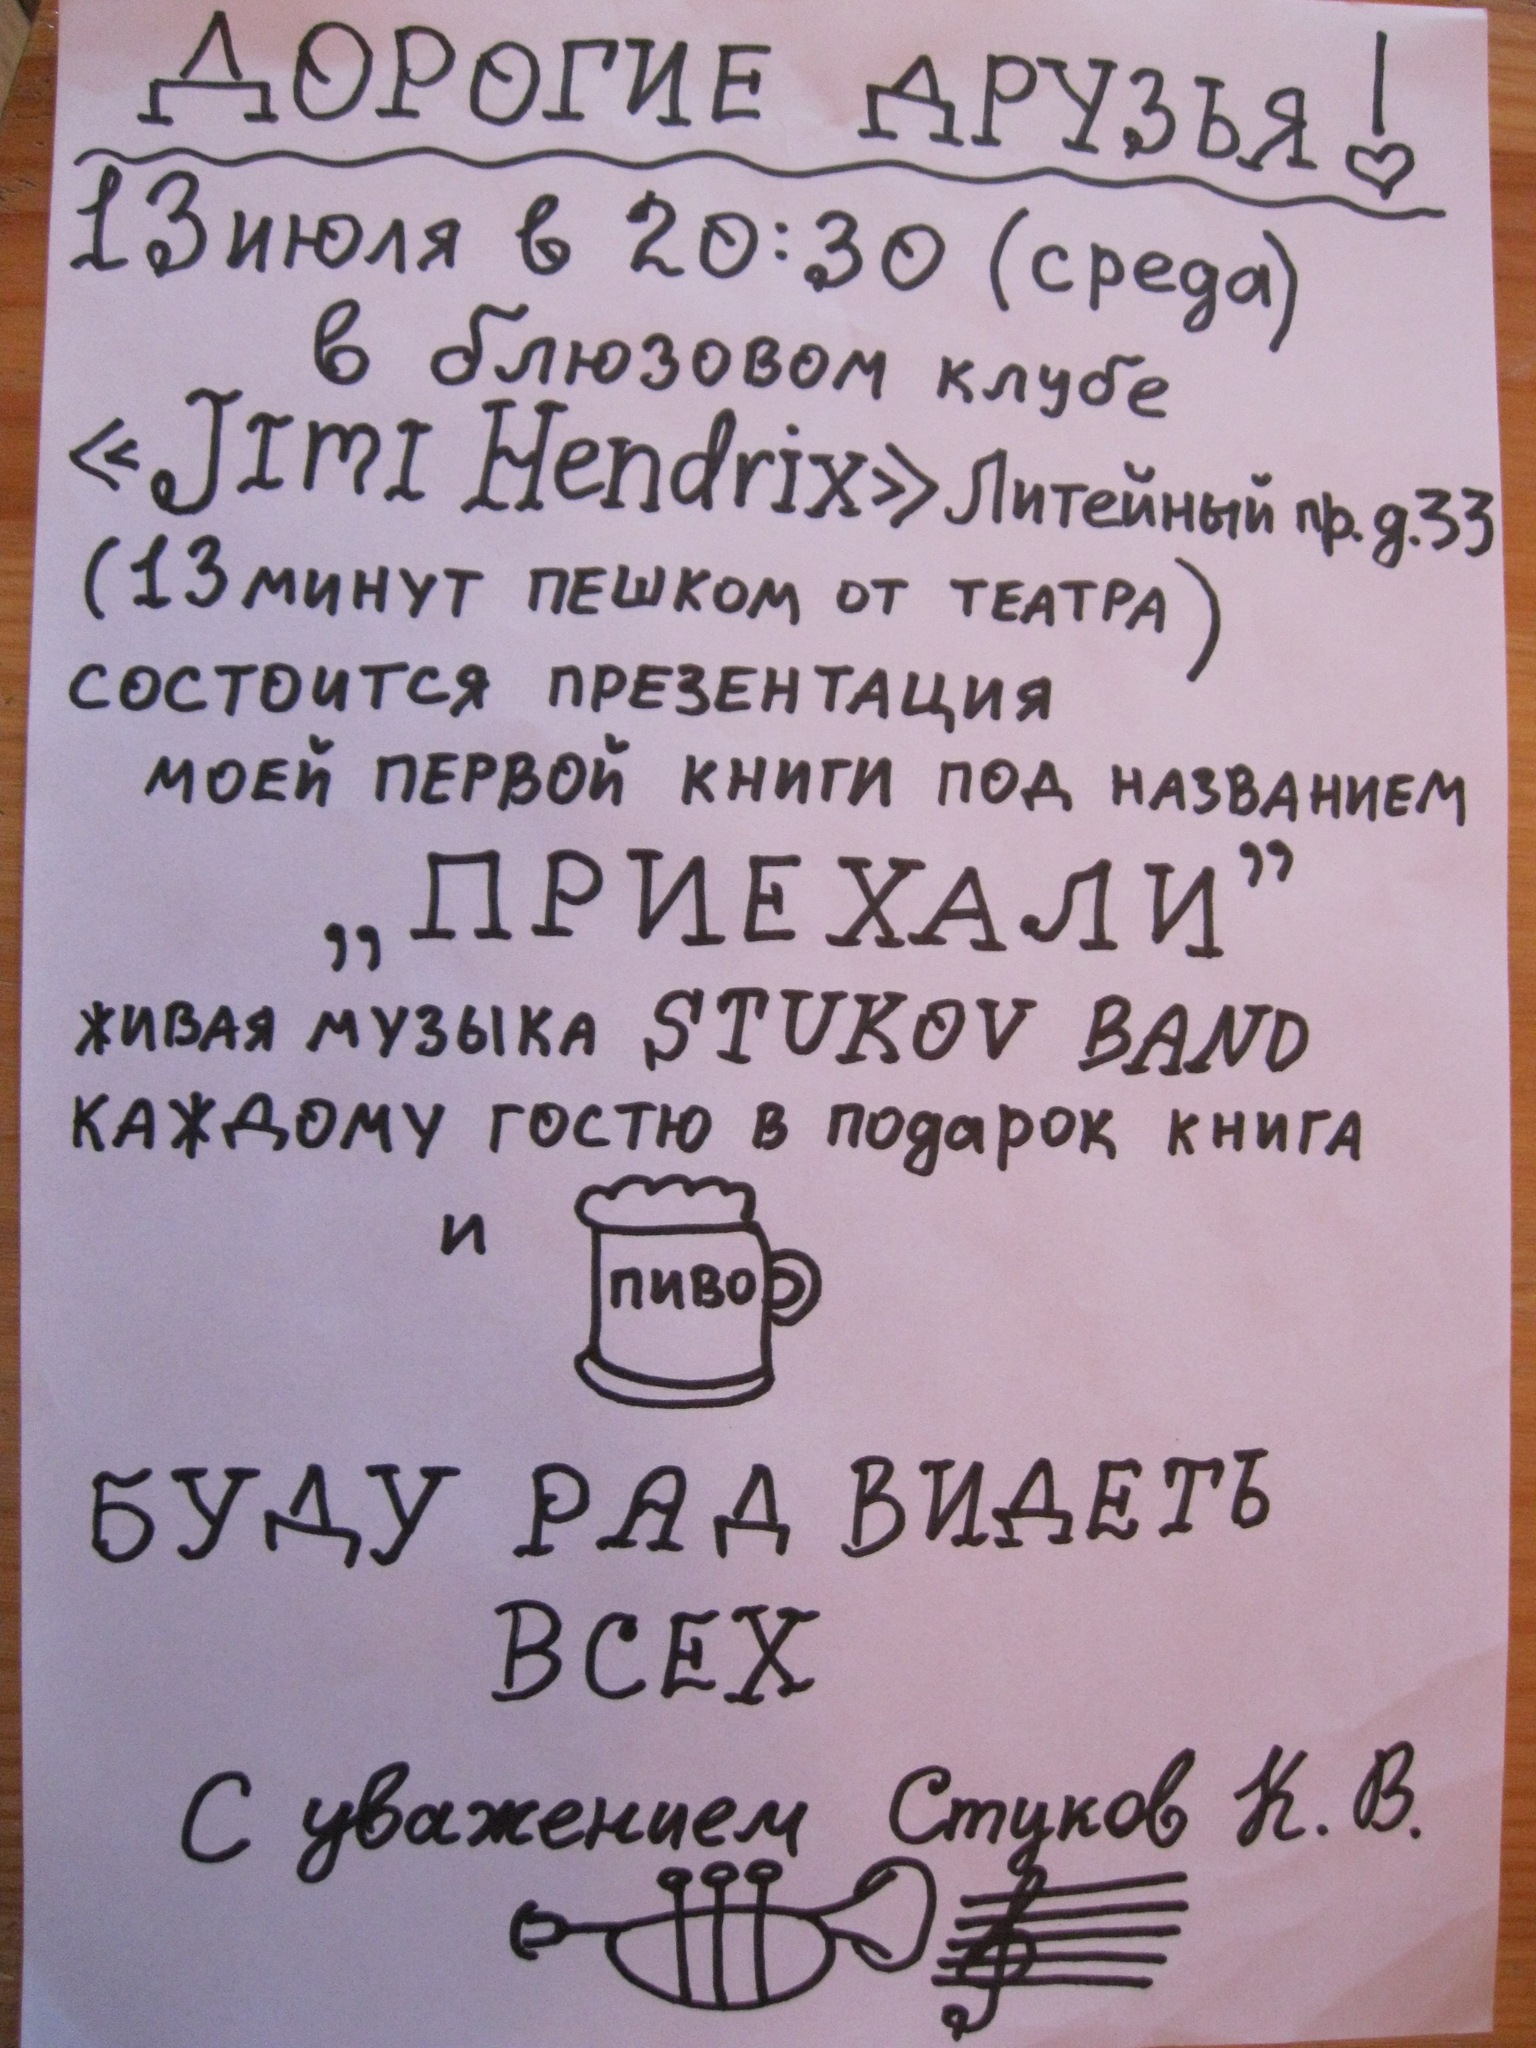 ДОРОГИЕ ДРУЗЬЯ!
13 июля в 20:30 (среда)
в блюзовом клубе
«JIMI Hendrix» Литейный пр. д. 33
(13 МИНУТ ПЕШКОМ ОТ ТЕАТРА)
СОСТОИТСЯ ПРЕЗЕНТАЦИЯ
МОЕЙ ПЕРВОЙ КНИГИ ПОД НАЗВАНИЕМ
„ПРИЕХАЛИ”
ЖИВАЯ МУЗЫКА STUKOV BAND
КАЖДОМУ ГОСТЮ В ПОДАРОК КНИГА
И
ПИВО
БУДУ РАД ВИДЕТЬ
ВСЕХ
С уважением Стуков К. В.